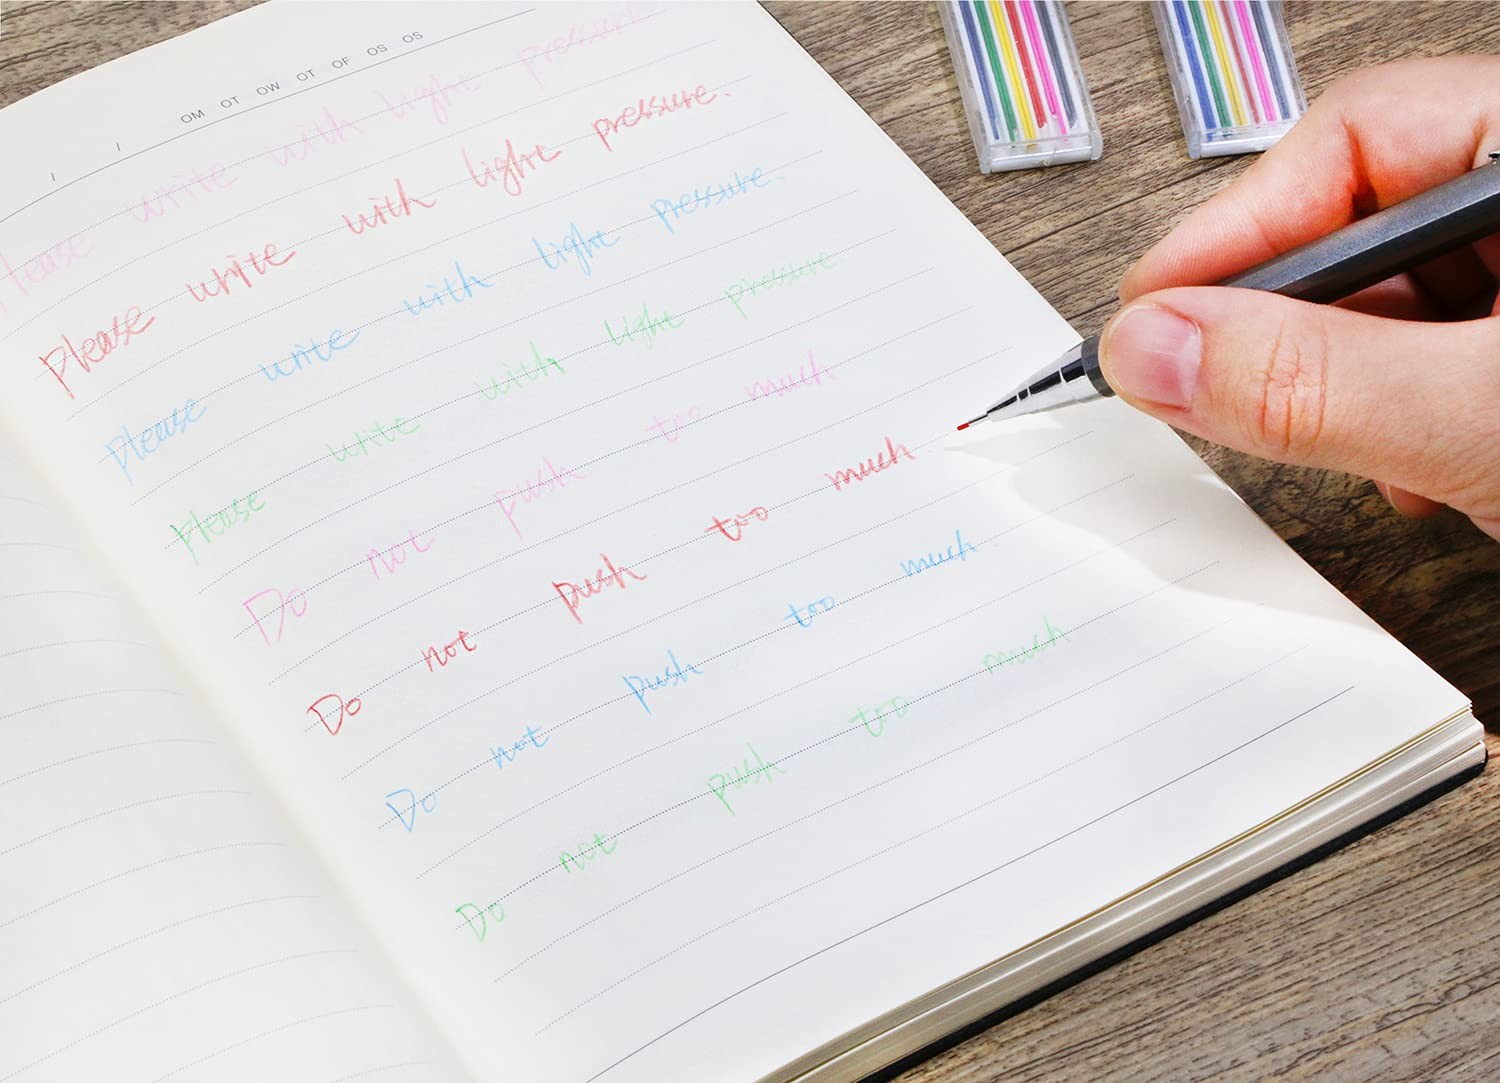 OM OT OW OT OF OS OS
Please write with light pressure.
Please write with light pressure.
Please write with light pressure.
Please write with light pressure.
Do not push too much
Do not push too much.
Do not push too much.
Do not push too much